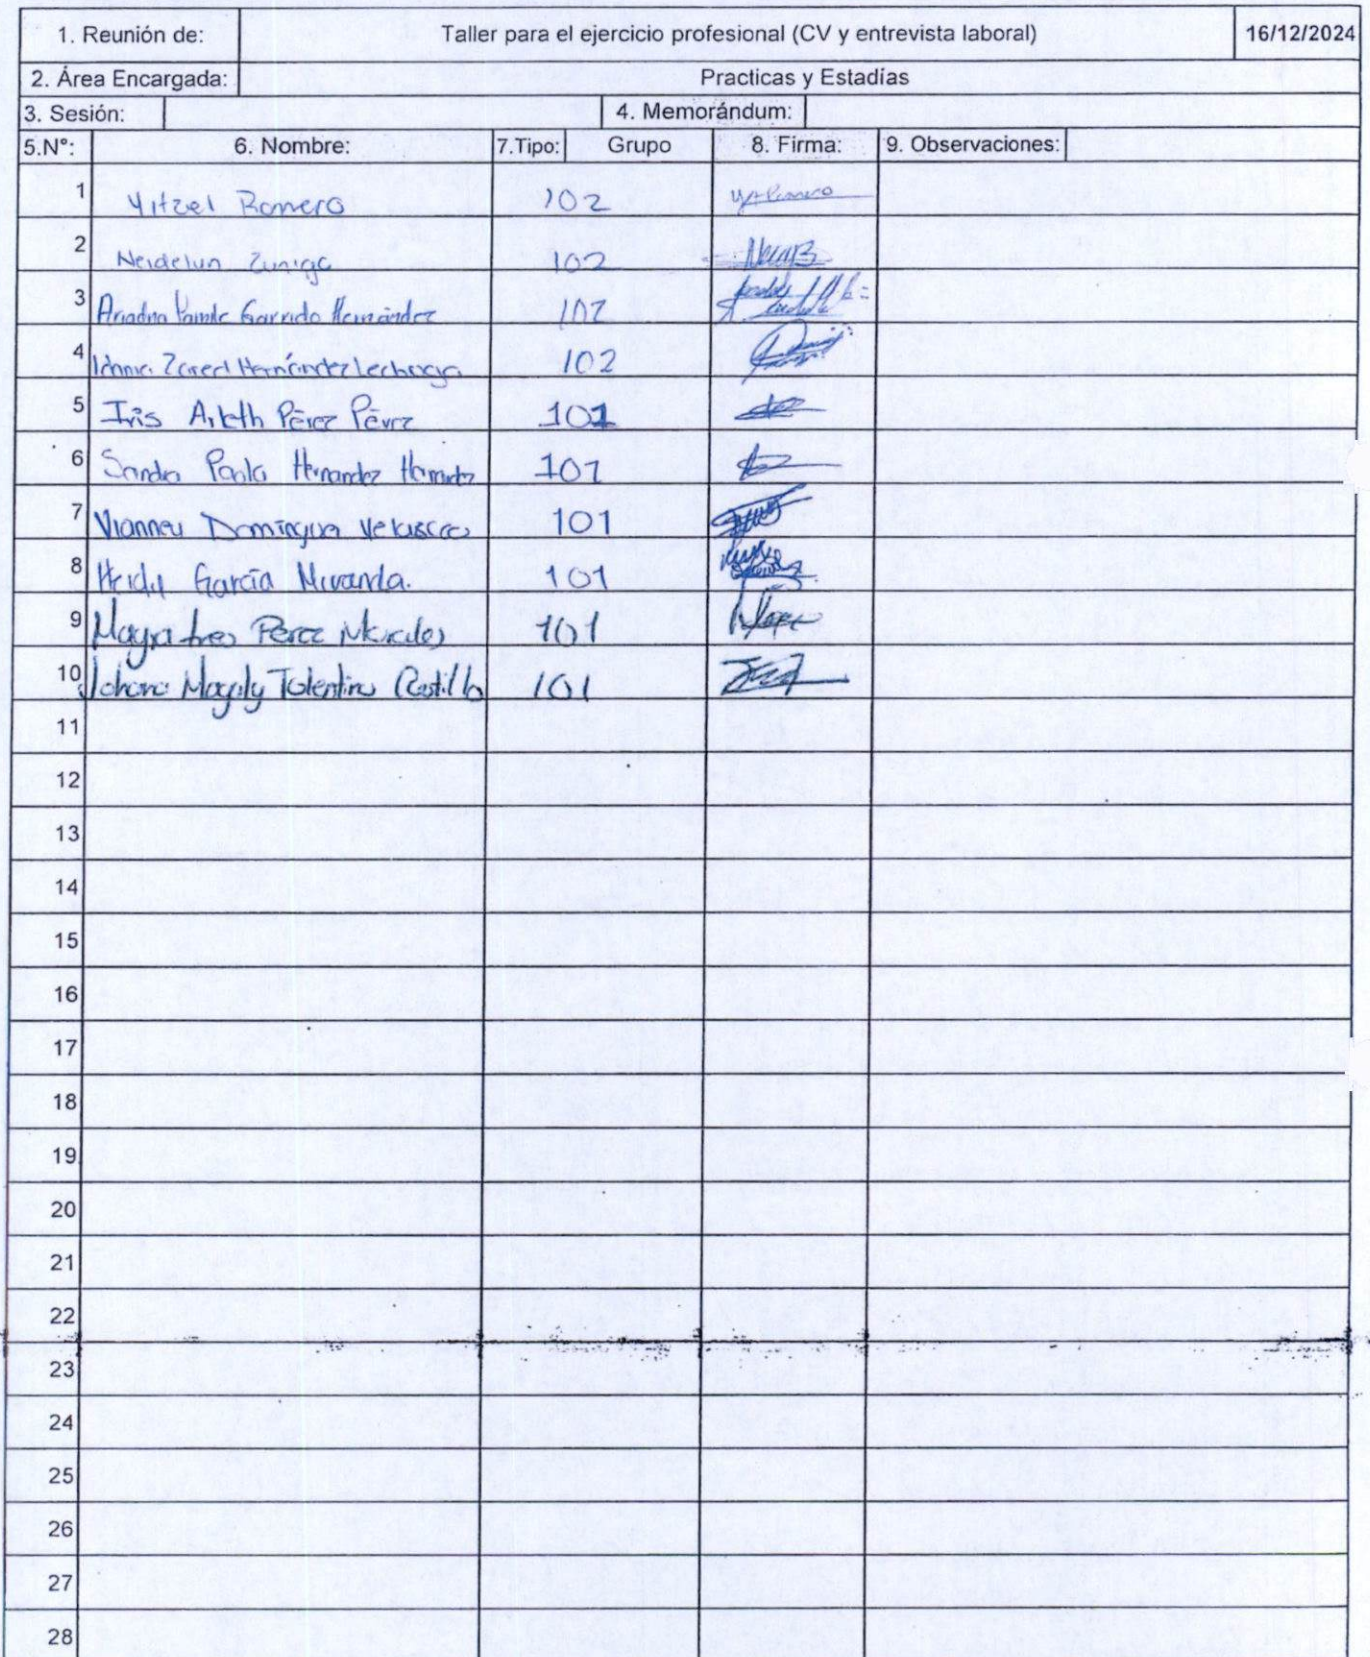 1. Reunión de: Taller para el ejercicio profesional (CV y entrevista laboral) 16/12/2024
2. Área Encargada: Practicas y Estadías
3. Sesión: 4. Memorándum:
5.N°: 6. Nombre: 7.Tipo: Grupo 8. Firma: 9. Observaciones:
1 Yitzel Romero 102
2 Neidelun Zuniga 102
3 Ariadna Yamile Garrido Hernández 102
4 Zared Hernández Lechuga 102
5 Iris Arleth Pérez Pérez 101
6 Sandra Paola Hernandez Hernandez 101
7 Vianney Dominguez Velasco 101
8 Heidy García Miranda. 101
9 Mayra Ines Perez Morales 101
10 Johana Magaly Tolentino Castillo 101
11
12
13
14
15
16
17
18
19
20
21
22
23
24
25
26
27
28